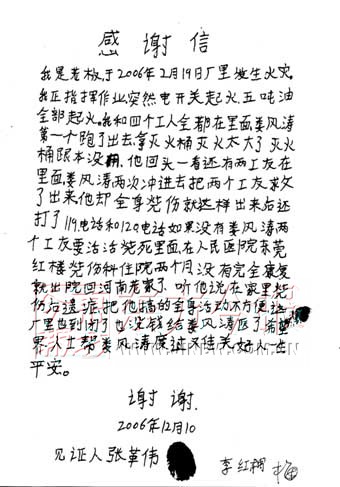 感谢信
我是老板,于2006年2月19日厂里发生火灾.
我正指挥作业突然电开关起火.五吨油
全部起火.我和四个工人全都在里面.娄风涛
第一个跑了出去.拿灭火桶灭火太大了灭火
桶跟本没用.他回头一看还有两工友在
里面.娄风涛两次冲进去把两个工友救
了出来他却全身烧伤就这样出来后还
打了119.电话和120电话如果没有娄风涛两
个工友要活活烧死里面.在人民医院东莞
红楼烧伤科住院两个月.没有完全康复
就出院回河南老家了.听他说在家里烧
伤后遗症.把他搞的全身活动不方便.这
厂里也到闭了也没钱给娄风涛医了.希望
界人士帮娄风涛度过难关好人一生
平安。
谢谢.
2006年12月10
见证人张革伟
李红栩